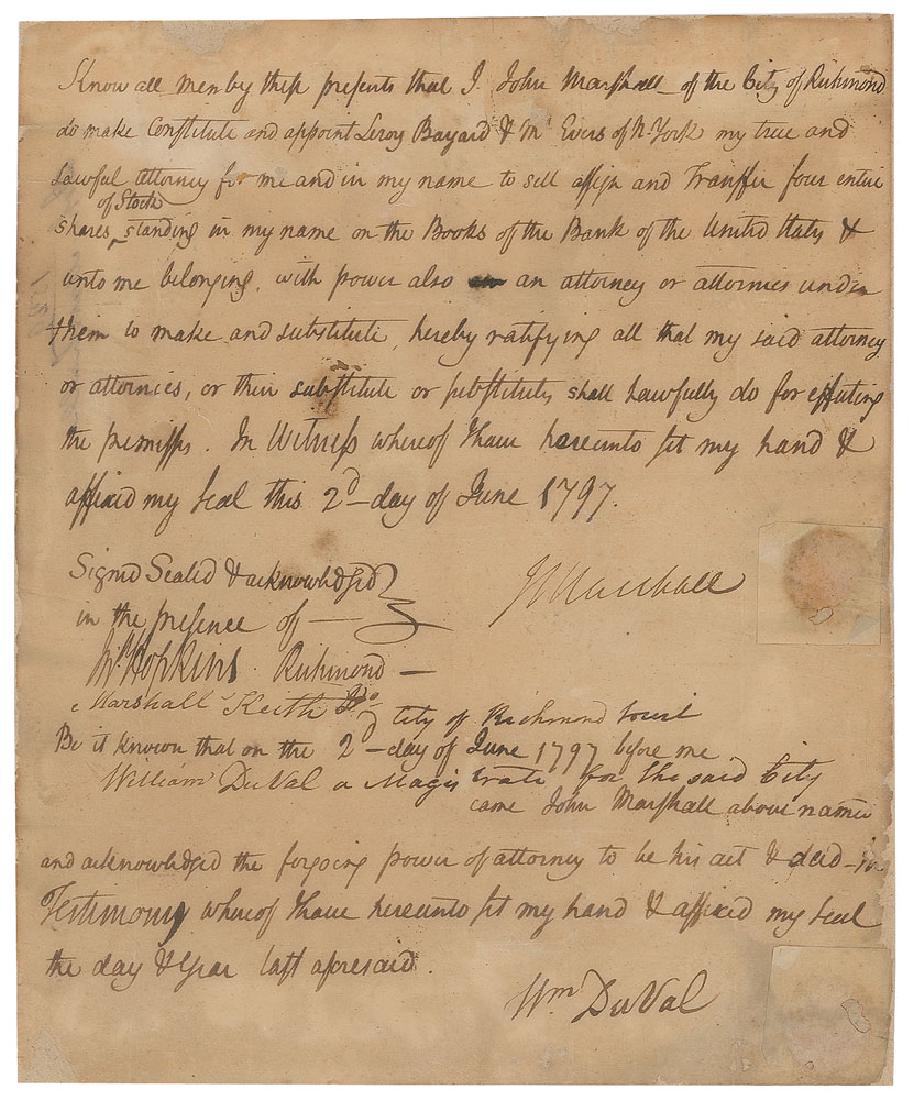 Know all men by these presents that I John Marshall of the City of Richmond
do make Constitute and appoint Leroy Bayard & Mc Evers of N. York my true and
Lawful attorney for me and in my name to sell assign and Transfer four entire
of Stock
shares standing in my name on the Books of the Bank of the United States &
unto me belonging, with power also an attorney or attornies under
them to make and substitute, hereby ratifying all that my said attorney
or attornies, or their substitute or substitutes shall Lawfully do for effecting
the premisses. In Witness whereof I have hereunto set my hand &
affixed my Seal this 2d day of June 1797.
Signed Sealed & acknowledged
in the presence of —
J Marshall
Jno Hopkins Richmond —
Marshall Keith
City of Richmond
Be it known that on the 2d day of June 1797 before me
William DuVal a Magistrate for the said City
came John Marshall above named
and acknowledged the forgoing power of attorney to be his act & deed — in
Testimony whereof I have hereunto set my hand & affixed my seal
the day & year last aforesaid.
Wm DuVal